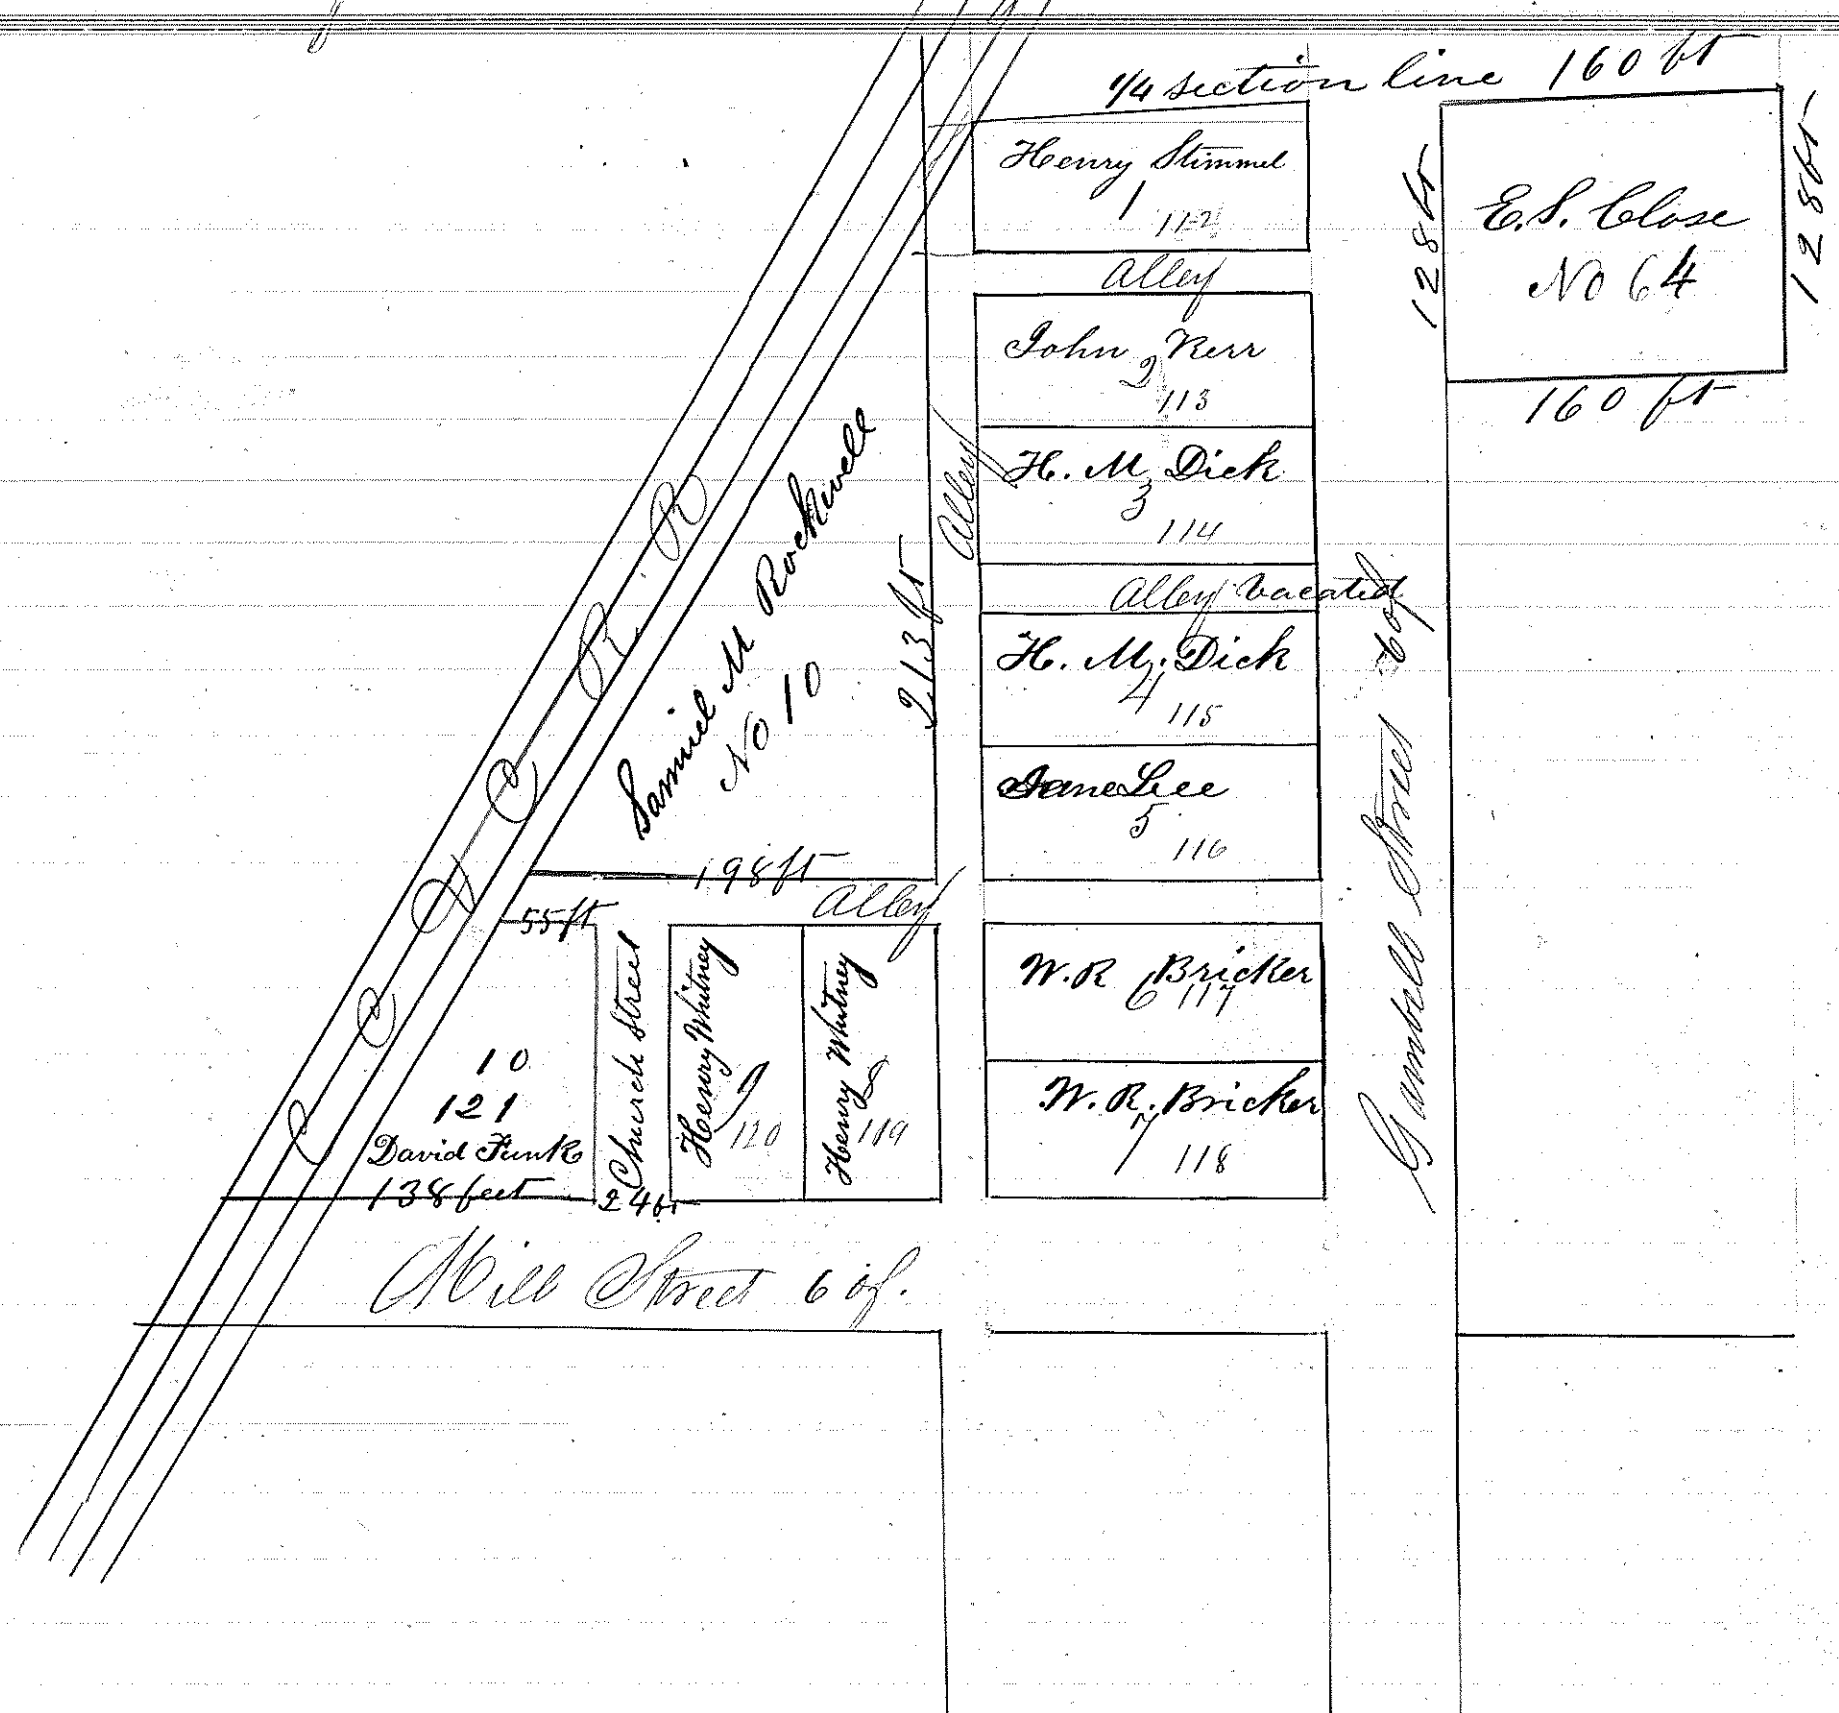 1/4 section line 160 ft
Henry Stimmel
1
112
128ft
E.S. Close
No 64
128ft
160 ft
Alley
John Kerr
2
113
H. M. Dick
3
114
Alley
Alley Vacated
H. M. Dick
4
115
Jane Lee
5
116
C C C & C R. R
Samuel M Rockwell
No 10
213 ft
198 ft
Alley
55 ft
Church Street
24 ft
Henry Whitney
9
120
Henry Whitney
8
119
W. R Bricker
6 117
W. R. Bricker
7
118
Gambell Street 60f
10
121
David Funk
138 feet
Mill Street 60f.